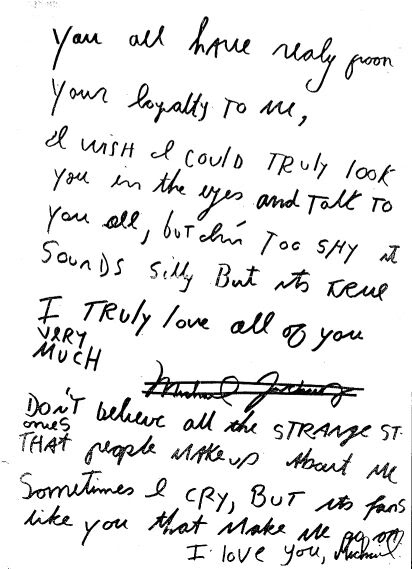 you all have realy proon
your loyalty TO me,
I WISH I COULD TRuly look
you in the eyes and Talk TO
you all, buT I'm Too SHY it
SounDS silly But its TRUE
I TRuly love all of you
VERY
MUCH
Michael Jackson
DON'T believe all the STRANGE ST.
ories
THAT people MAKE up About me
Sometimes I CRY, BUT its fans
like you that Make Me go on
I love you, Michael